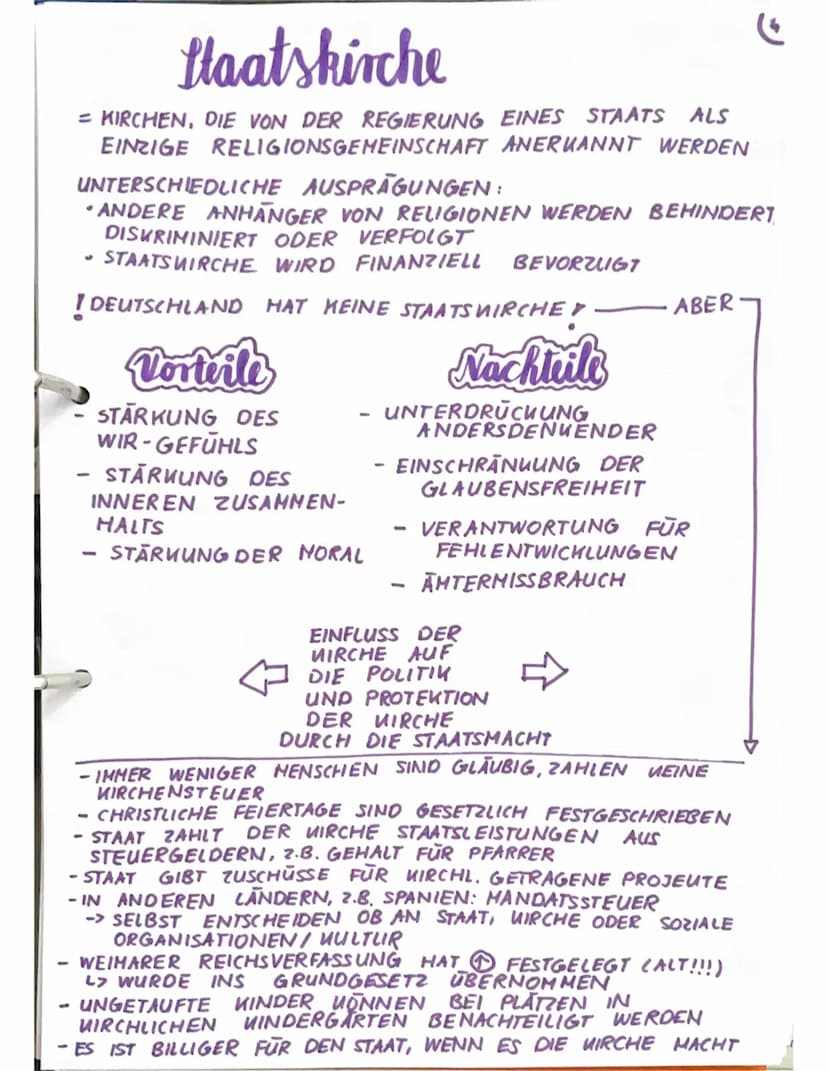 4
Staatskirche
= KIRCHEN, DIE VON DER REGIERUNG EINES STAATS ALS
EINZIGE RELIGIONSGEMEINSCHAFT ANERKANNT WERDEN
UNTERSCHIEDLICHE AUSPRÄGUNGEN:
• ANDERE ANHÄNGER VON RELIGIONEN WERDEN BEHINDERT,
DISKRIMINIERT ODER VERFOLGT
• STAATSKIRCHE WIRD FINANZIELL BEVORZUGT
! DEUTSCHLAND HAT KEINE STAATSKIRCHE! ABER
Vorteile
- STÄRKUNG DES
WIR-GEFÜHLS
- STÄRKUNG DES
INNEREN ZUSAMMEN-
HALTS
- STÄRKUNG DER MORAL
Nachteile
- UNTERDRÜCKUNG
ANDERSDENKENDER
- EINSCHRÄNKUNG DER
GLAUBENSFREIHEIT
- VERANTWORTUNG FÜR
FEHLENTWICKLUNGEN
- ÄMTERMISSBRAUCH
EINFLUSS DER
KIRCHE AUF
DIE POLITIK
UND PROTEKTION
DER KIRCHE
DURCH DIE STAATSMACHT
- IMMER WENIGER MENSCHEN SIND GLÄUBIG, ZAHLEN KEINE
KIRCHENSTEUER
- CHRISTLICHE FEIERTAGE SIND GESETZLICH FESTGESCHRIEBEN
- STAAT ZAHLT DER KIRCHE STAATSLEISTUNGEN AUS
STEUERGELDERN, Z.B. GEHALT FÜR PFARRER
- STAAT GIBT ZUSCHÜSSE FÜR KIRCHL. GETRAGENE PROJEKTE
- IN ANDEREN LÄNDERN, Z.B. SPANIEN: MANDATSSTEUER
-> SELBST ENTSCHEIDEN OB AN STAAT, KIRCHE ODER SOZIALE
ORGANISATIONEN / KULTUR
- WEIMARER REICHSVERFASSUNG HAT ↑ FESTGELEGT (ALT!!!)
↳ WURDE INS GRUNDGESETZ ÜBERNOMMEN
- UNGETAUFTE KINDER KÖNNEN BEI PLÄTZEN IN
KIRCHLICHEN KINDERGÄRTEN BENACHTEILIGT WERDEN
- ES IST BILLIGER FÜR DEN STAAT, WENN ES DIE KIRCHE MACHT